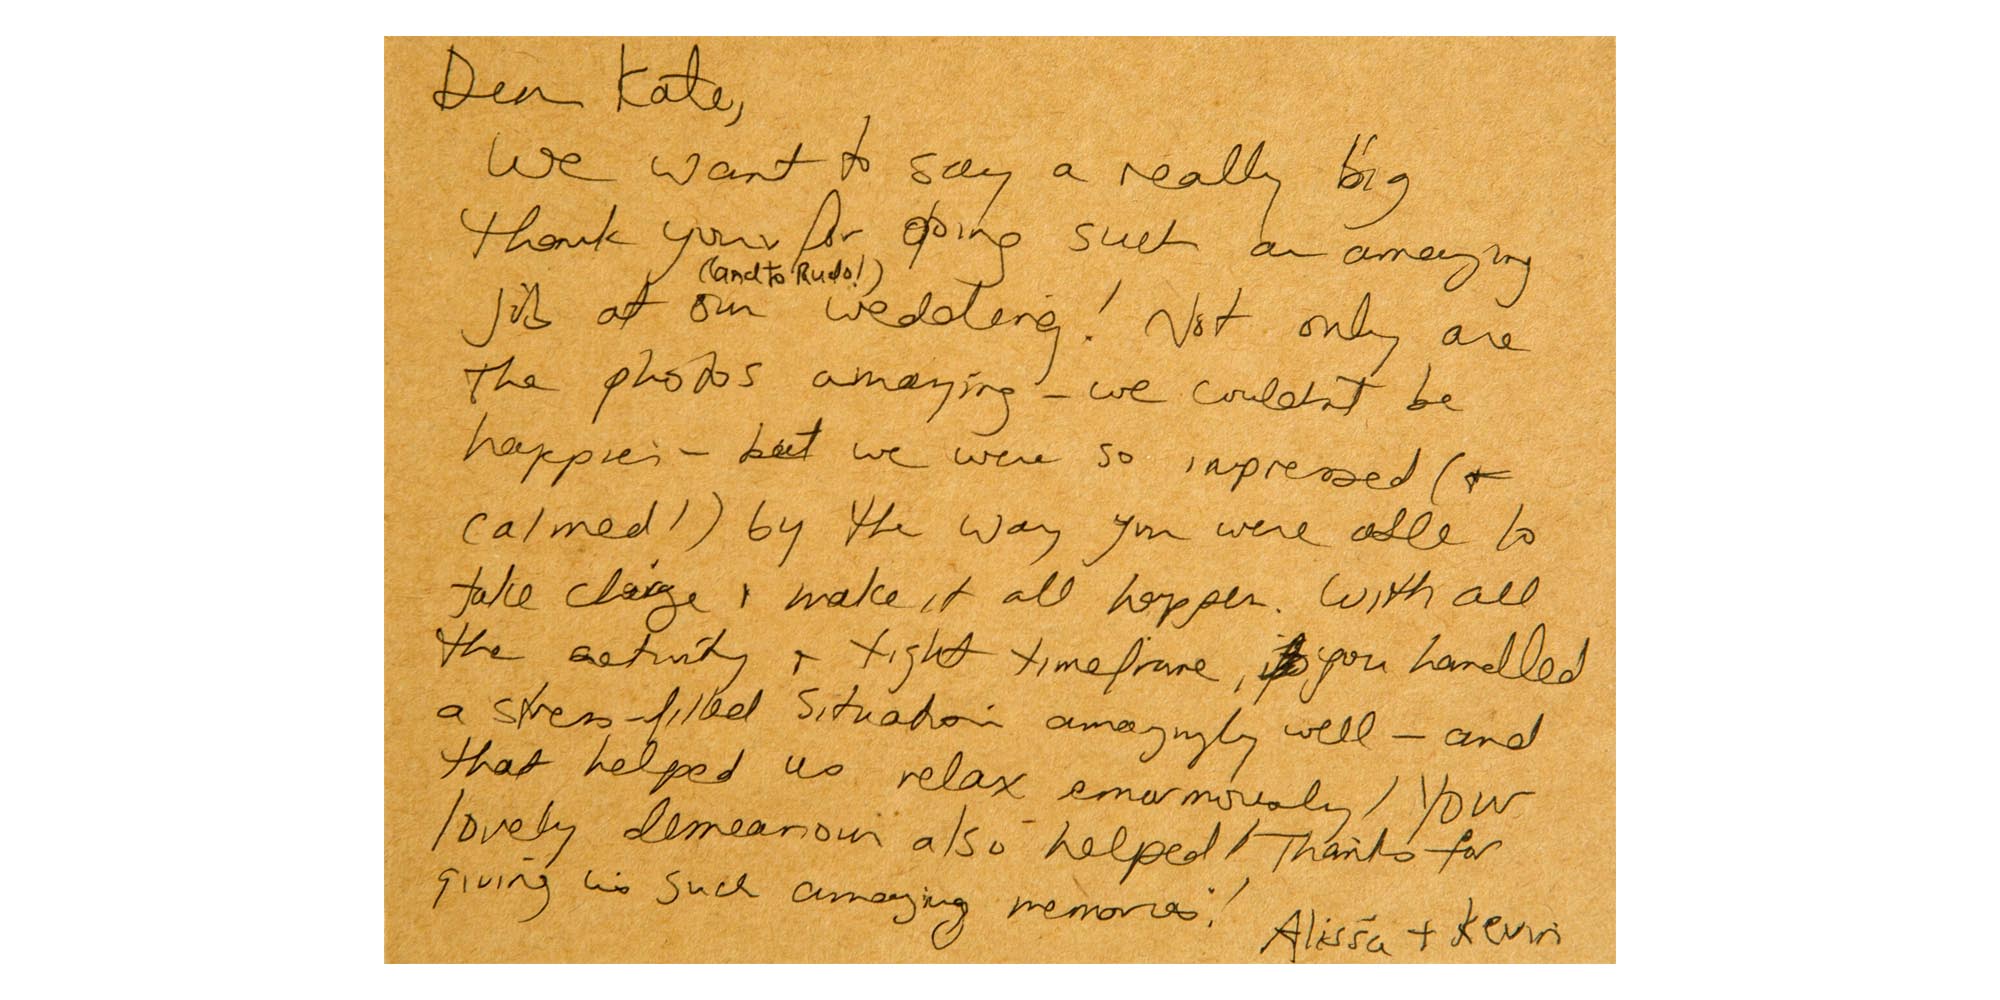 Dear Kate,
We want to say a really big
thank you for doing such an amazing
(and to Rudo!)
job at our wedding! Not only are
the photos amazing - we couldn't be
happier - but we were so impressed (+
calmed!) by the way you were able to
take charge + make it all happen. With all
the activity + tight timeframe, you handled
a stress-filled situation amazingly well - and
that helped us relax enormously! Your
lovely demeanour also helped! Thanks for
giving us such amazing memories!
Alissa + Kevin